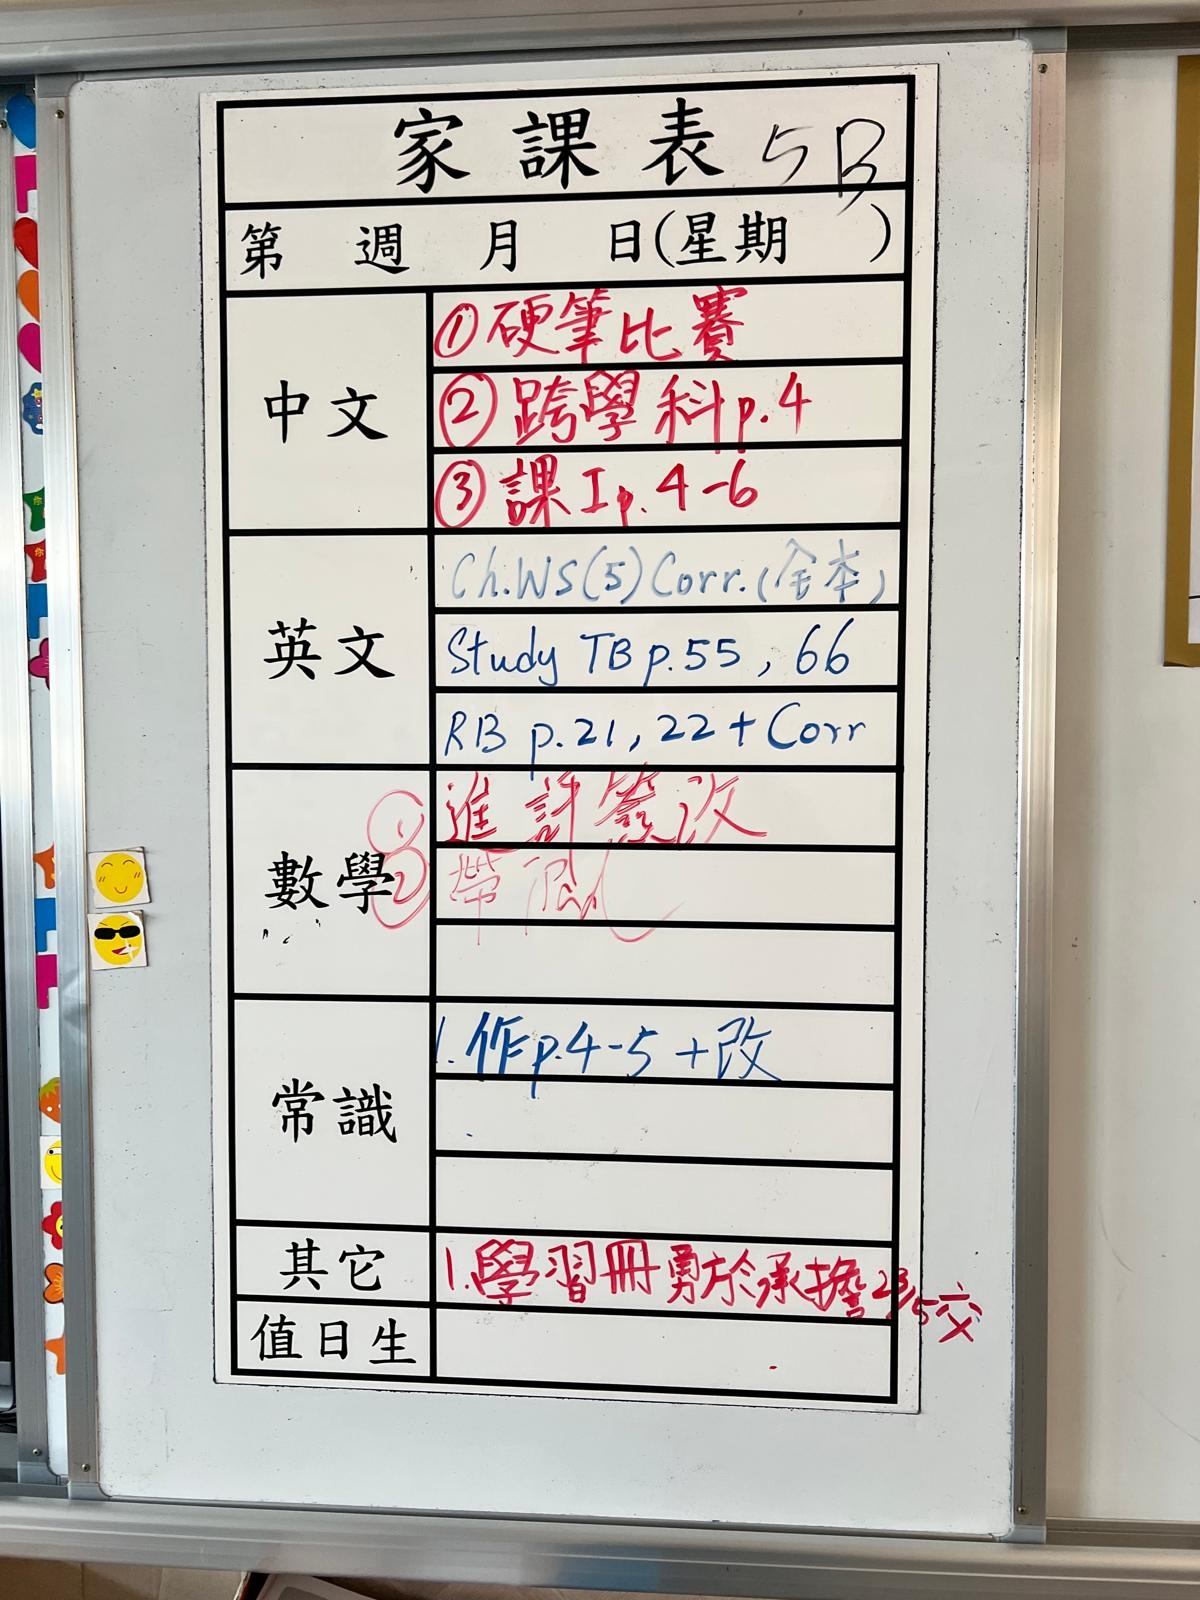 家課表 5B
第 週 月 日(星期 )
中文
①硬筆比賽
②跨學科p.4
③課工p.4-6
英文
Ch.WS(5)Corr.(全本)
Study TB p.55, 66
RB p.21, 22 + Corr
數學
①進評簽改
②帶
常識
1.作p.4-5+改
其它
1.學習冊勇於承擔23/5交
值日生